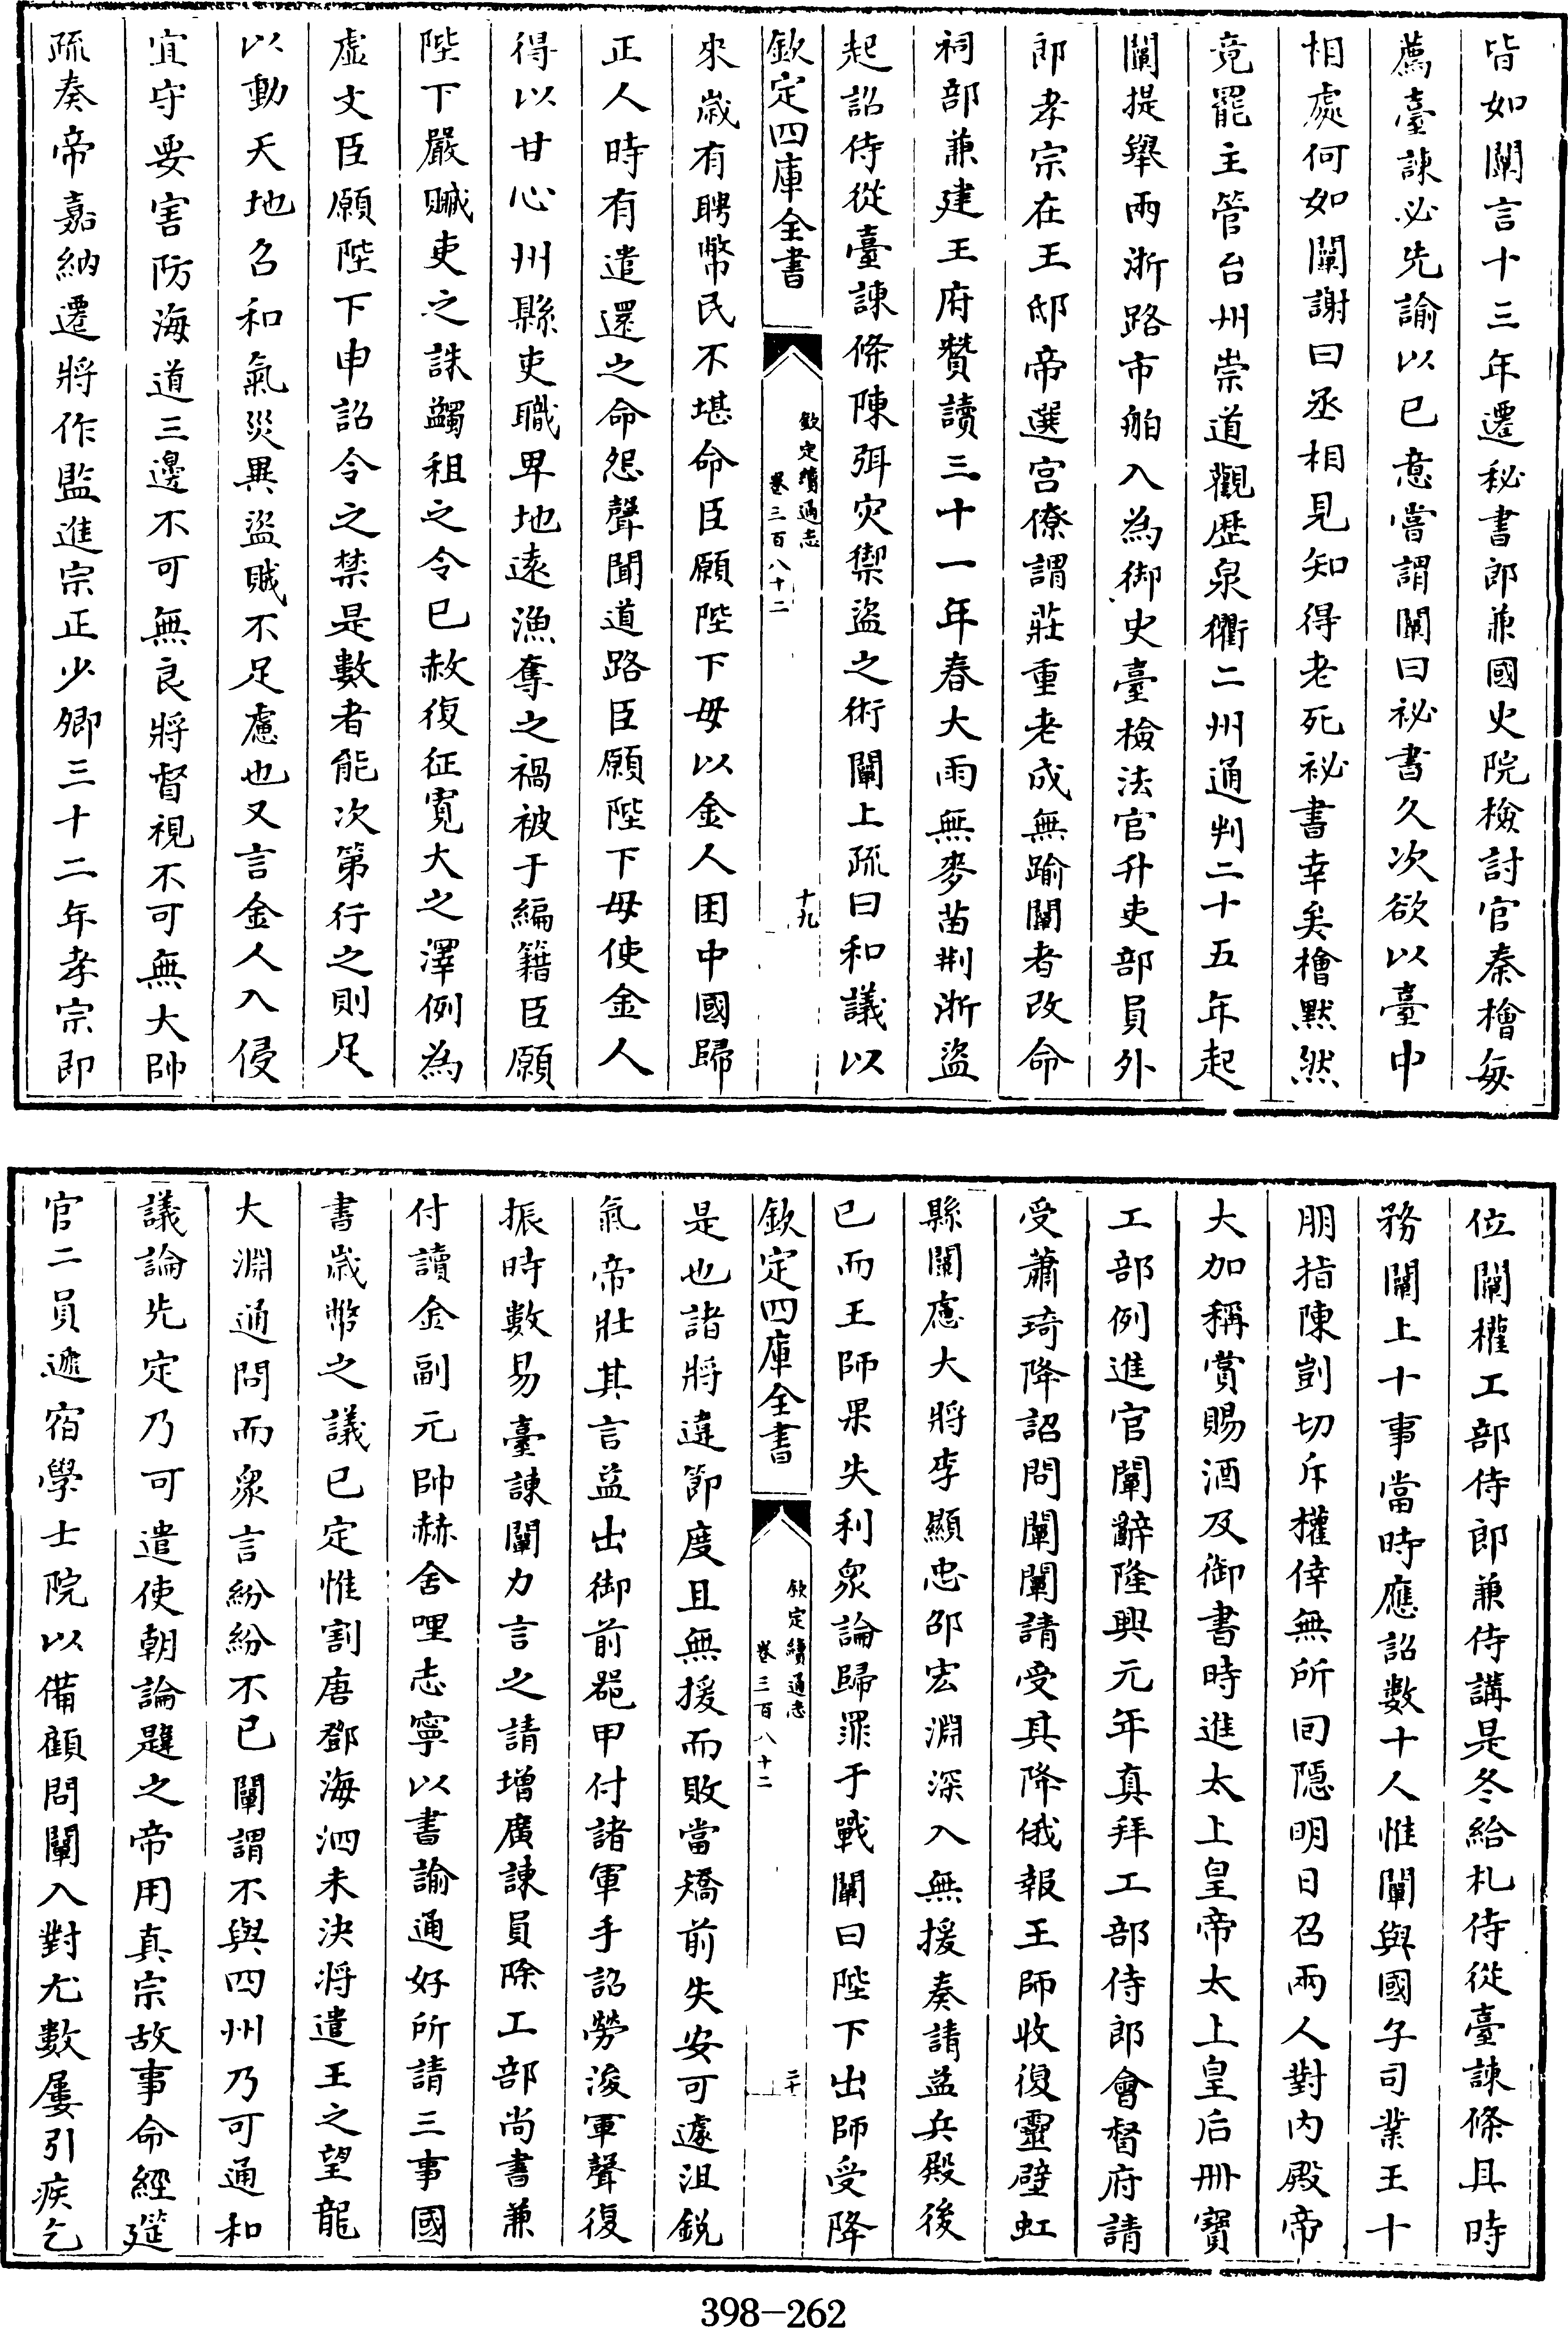 皆如闡言十三年遷秘書郎兼國史院檢討官秦檜每
薦臺諫必先諭以已意嘗謂闡曰祕書久次欲以臺中
相處何如闡謝曰丞相見知得老死祕書幸矣檜黙然
竟罷主管台州崇道觀歴泉衢二州通判二十五年起
闡提舉兩浙路市舶入為御史臺檢法官升吏部員外
郎孝宗在王邸帝選宫僚謂莊重老成無踰闡者改命
祠部兼建王府贊讀三十一年春大雨無麥苗荆浙盜
起詔侍從臺諫條陳弭灾禦盜之術闡上疏曰和議以
欽定四庫全書
欽定續通志
卷三百八十二
十九
來嵗有聘幣民不堪命臣願陛下毋以金人困中國歸
正人時有遣還之命怨聲聞道路臣願陛下毋使金人
得以甘心州縣吏職卑地遠漁奪之禍被于編籍臣願
陛下嚴贓吏之誅蠲租之令已赦復征寛大之澤例為
虚文臣願陛下申詔令之禁是數者能次第行之則足
以動天地召和氣災異盜賊不足慮也又言金人入侵
宜守要害防海道三邊不可無良將督視不可無大帥
疏奏帝嘉納遷將作監進宗正少卿三十二年孝宗即
位闡權工部侍郎兼侍講是冬給札侍從臺諫條具時
務闡上十事當時應詔數十人惟闡與國子司業王十
朋指陳剴切斥權倖無所囘隱明日召兩人對内殿帝
大加稱賞賜酒及御書時進太上皇帝太上皇后冊寶
工部例進官闡辭隆興元年真拜工部侍郎會督府請
受蕭琦降詔問闡闡請受其降俄報王師收復靈壁虹
縣闡慮大將李顯忠邵宏淵深入無援奏請益兵殿後
已而王師果失利衆論歸罪于戰闡曰陛下出師受降
欽定四庫全書
欽定續通志
卷三百八十二
二十
是也諸將違節度且無援而敗當矯前失安可遽沮銳
氣帝壯其言益出御前器甲付諸軍手詔勞浚軍聲復
振時數易臺諫闡力言之請增廣諫員除工部尚書兼
付讀金副元帥赫舍哩志寧以書諭通好所請三事國
書嵗幣之議已定惟割唐鄧海泗未決將遣王之望龍
大淵通問而衆言紛紛不已闡謂不與四州乃可通和
議論先定乃可遣使朝論韙之帝用真宗故事命經筵
官二員遞宿學士院以備顧問闡入對尤數屢引疾乞
398-262